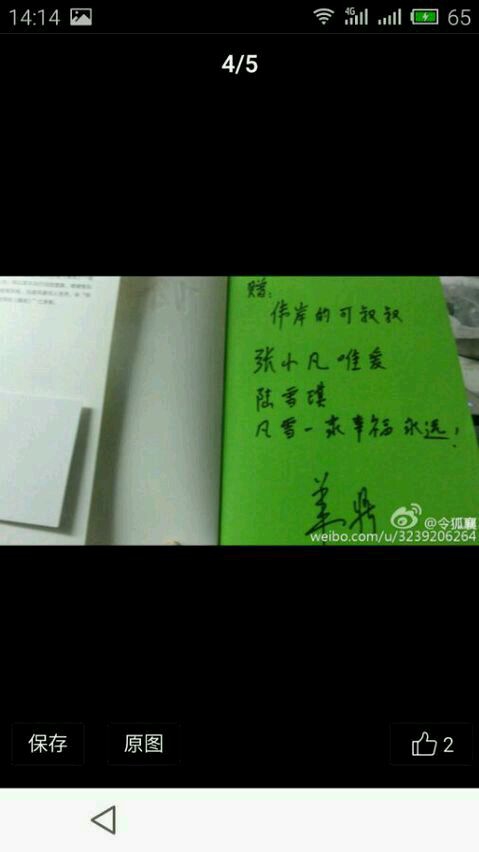 14:14
4G
65
4/5
赠:
伟岸的可叔叔
张小凡唯爱
陆雪琪
凡雪一家幸福永远!
@令狐襄
weibo.com/u/3239206264
保存
原图
2